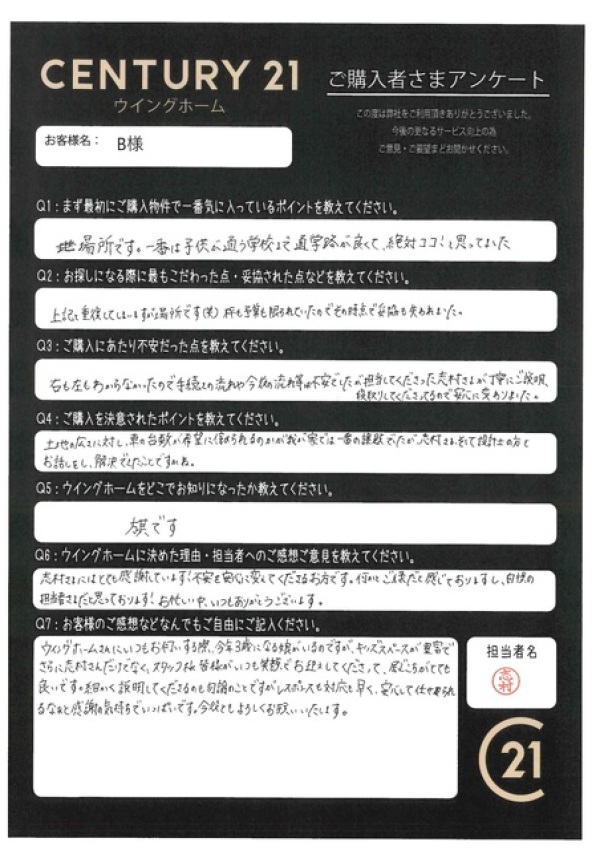 CENTURY 21
ウイングホーム
ご購入者さまアンケート
この度は弊社をご利用頂きありがとうございました。
今後の更なるサービス向上の為
ご意見・ご要望をお聞かせください。
お客様名： B様
Q1：まず最初にご購入物件で一番気に入っているポイントを教えてください。
場所です。一番は子供が通う学校まで通学路が良くて、絶対ココ！と思っていました
Q2：お探しになる際に最もこだわった点・妥協された点などを教えてください。
上記と重複してしまいますが場所です(笑) 枠も予算も限られていたのでその時点で妥協も
Q3：ご購入にあたり不安だった点を教えてください。
右も左もわからなかったので手続きの流れや今後の流れ等は不安でしたが担当してくださった志村さまが丁寧にご説明、
段取りしてくださったので安心に変わりました。
Q4：ご購入を決意されたポイントを教えてください。
土地の広さに対し、車の台数が希望に停められるのかが我が家では一番の課題でしたが、志村さま、そして設計士の方と
お話しをし、解決できたことですかね。
Q5：ウイングホームをどこでお知りになったか教えてください。
旗です
Q6：ウイングホームに決めた理由・担当者へのご感想ご意見を教えてください。
志村さまにはとても感謝しています！不安を安心に変えてくださるお方です。何かのご縁だと感じておりますし、自慢の
担当者さまだと思っております！お忙しい中、いつもありがとうございます。
Q7：お客様のご感想などなんでもご自由にご記入ください。
ウイングホームさんにいつもお伺いする際、今年3歳になる娘がいるのですが、キッズスペースが豊富で
さらに志村さんだけでなく、スタッフ様 皆様がいつも笑顔でお迎えしてくださって、居ごこちがとても
良いです。細かく説明してくださるのも勿論のことですがレスポンスも対応も早く、安心して任せられ
るなぁと感謝の気持ちでいっぱいです。今後ともよろしくお願いいたします。
担当者名
志村
C21